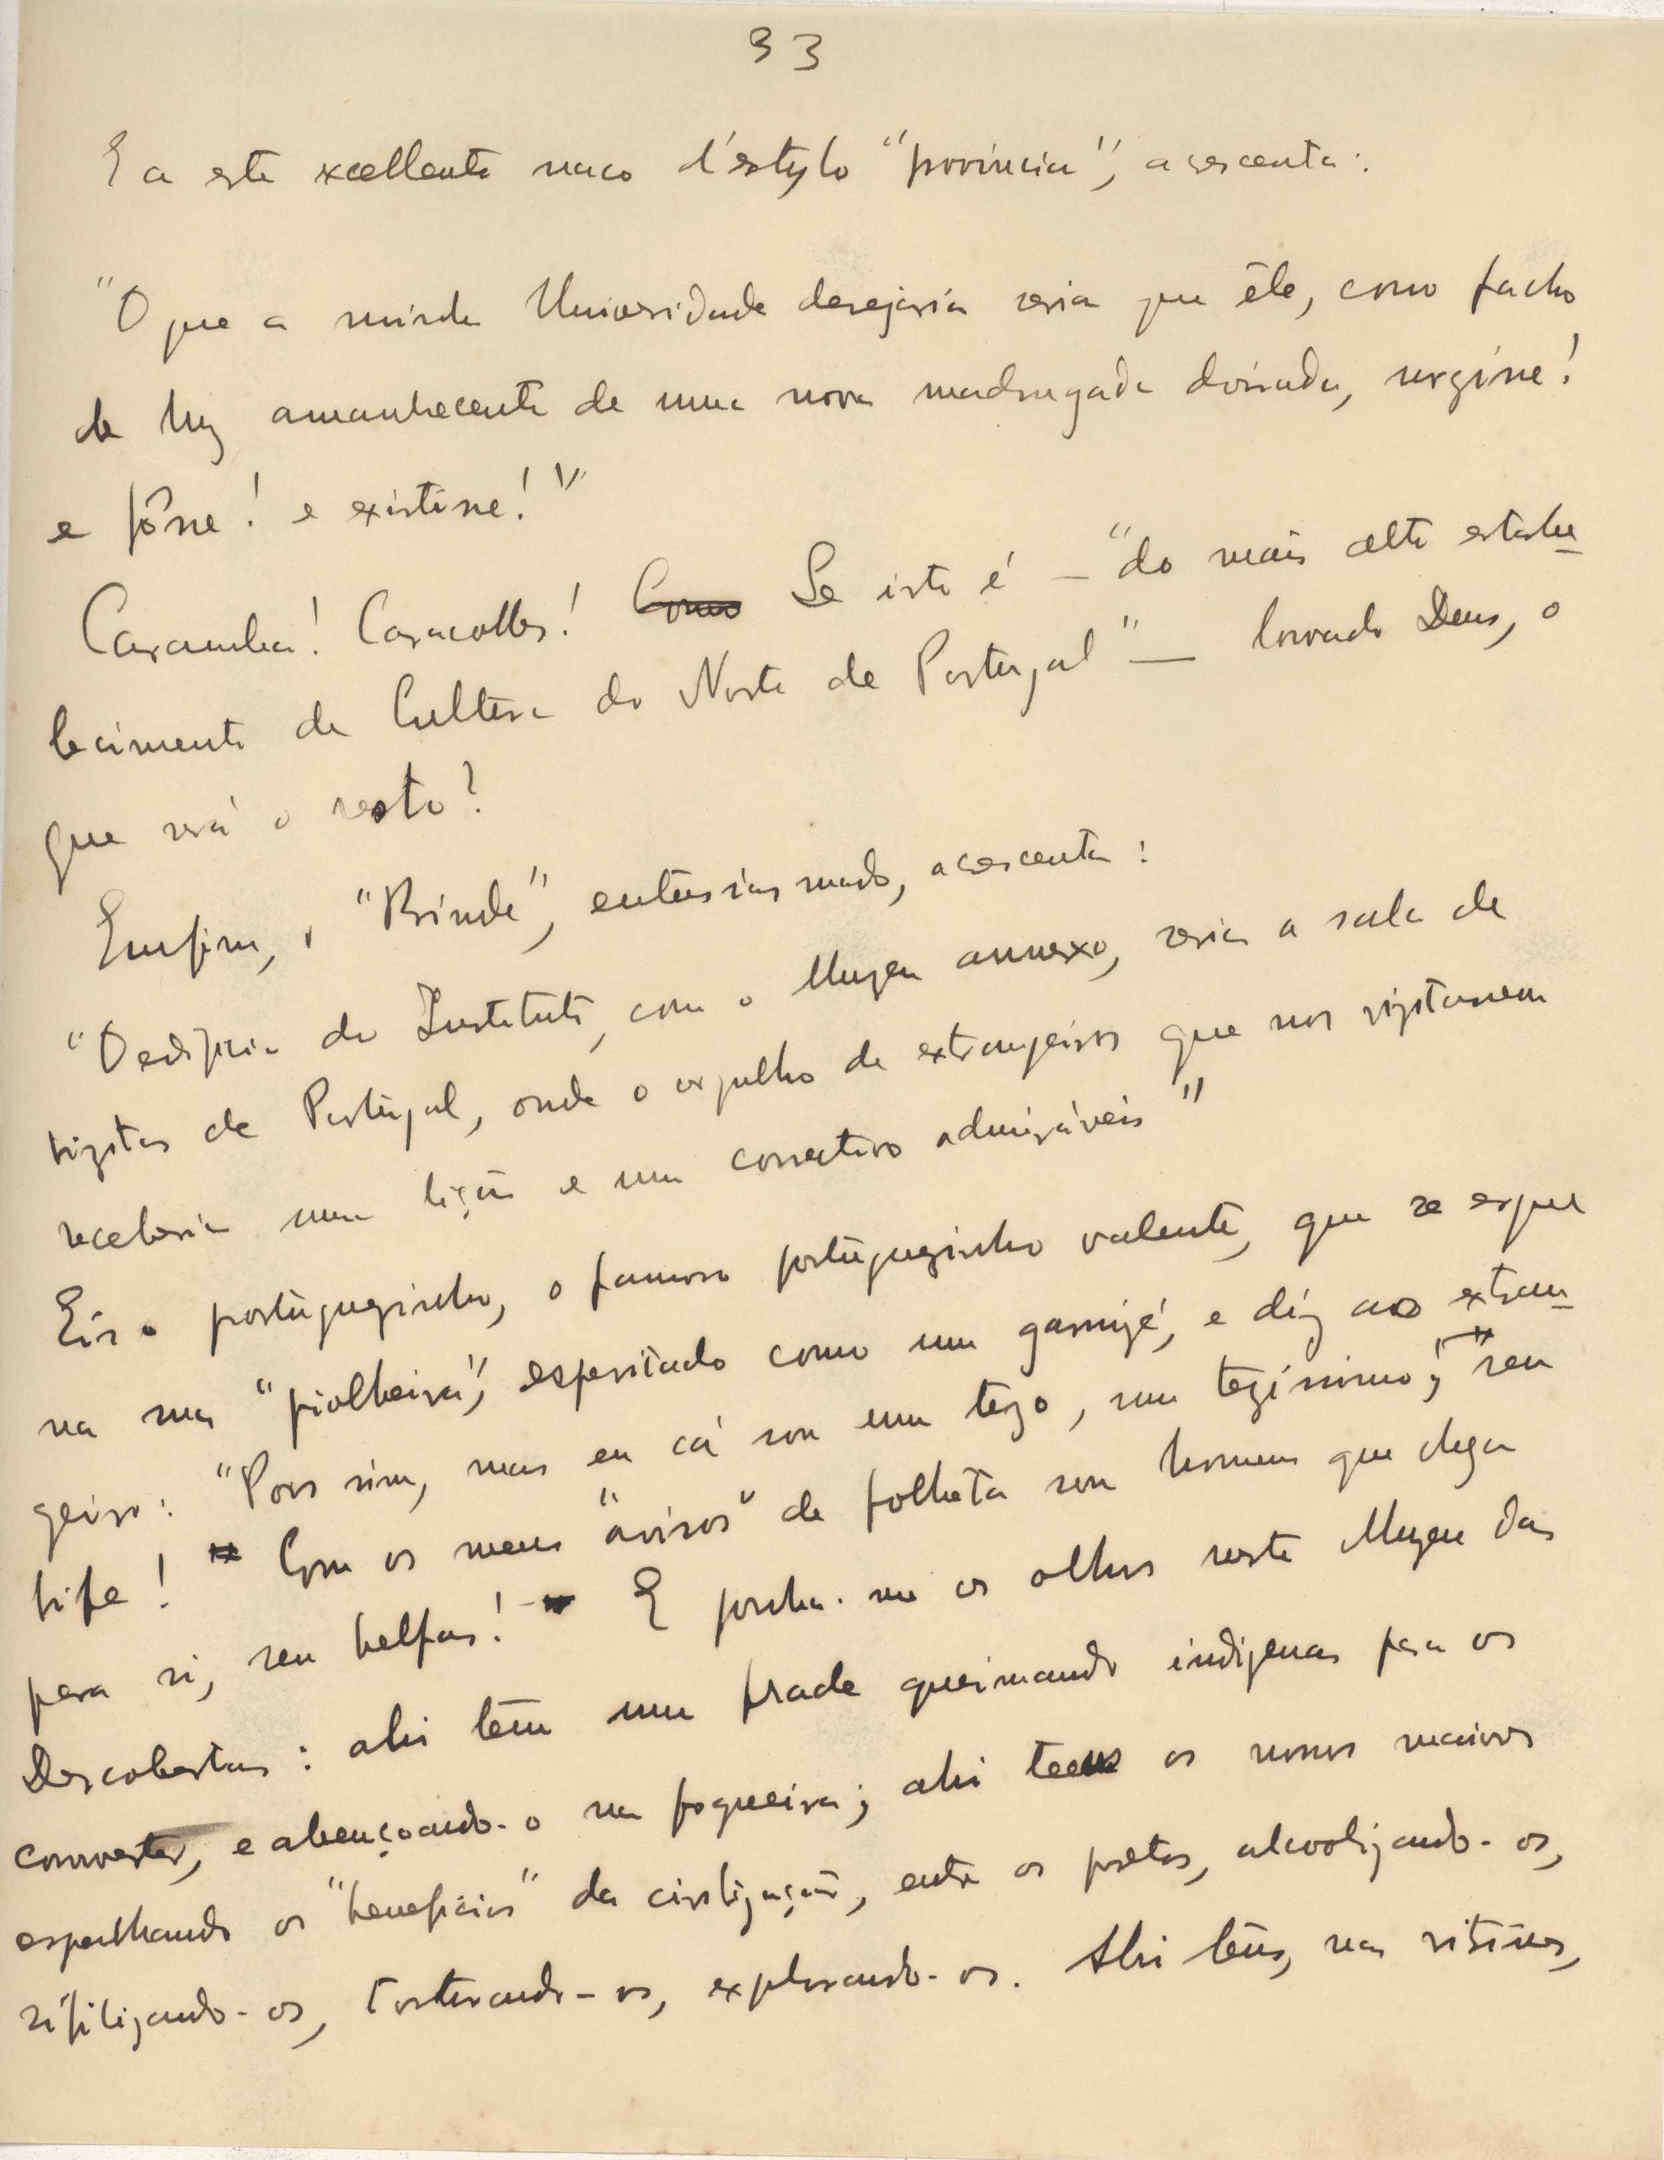 33
E a este excellente naco d'estylo "provincia", acrescenta:
"O que a minha Universidade desejaria seria que êle, como facho
de luz amanhecente de uma nova madrugada doirada, urgisse!
e fôsse! e existisse!"
Caramba! Caracolles! Como Se isto é — "do mais alto estabe-
lecimento de Cultura do Norte de Portugal" — louvado Deus, o
que será o resto?
Emfim, o "Brinde", entusiasmado, acrescenta:
"O edificio do Instituto, com o Muzeu annexo, seria a sala de
vizitas de Portugal, onde o orgulho de extrangeiros que nos vizitassem
receberia uma lição e um correctivo admiráveis"
Eis o portuguezinho, o famoso portuguezinho valente, que se ergue
na sua "piolheira", espevitado como um garnizé, e diz ao extran-
geiro: "Pois sim, mas eu cá sou um tezo, um tezissimo; seu
bife! Com os meus "avisos" de folheta sou homem que chega
para si, seu belfas! E ponha-me os olhos neste Muzeu das
Descobertas: ahi têm um frade queimando indigenas para os
converter, e abençoando-o na fogueira; ahi teem os nossos maiores
espalhando os "beneficios" da civilização, entre os pretos, alcoolizando-os,
sifilizando-os, torturando-os, explorando-os. Ahi têm, nas vitrines,